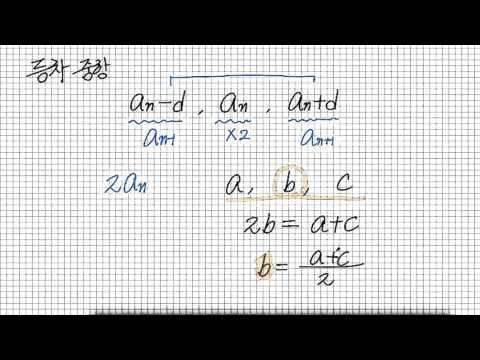 등차 중항
aₙ-d , aₙ , aₙ+d
aₙ₋₁ ×2 aₙ₊₁
2aₙ a, b, c
2b = a+c
b = (a+c)/2